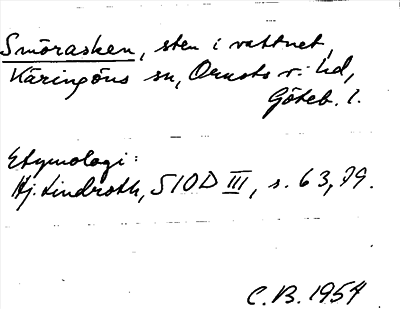 Smörasken, sten i vattnet,
Käringöns sn, Orusts v. hd,
Göteb. l.
Etymologi:
Hj. Lindroth, SIOD III, s. 63, 79.
C.B. 1954